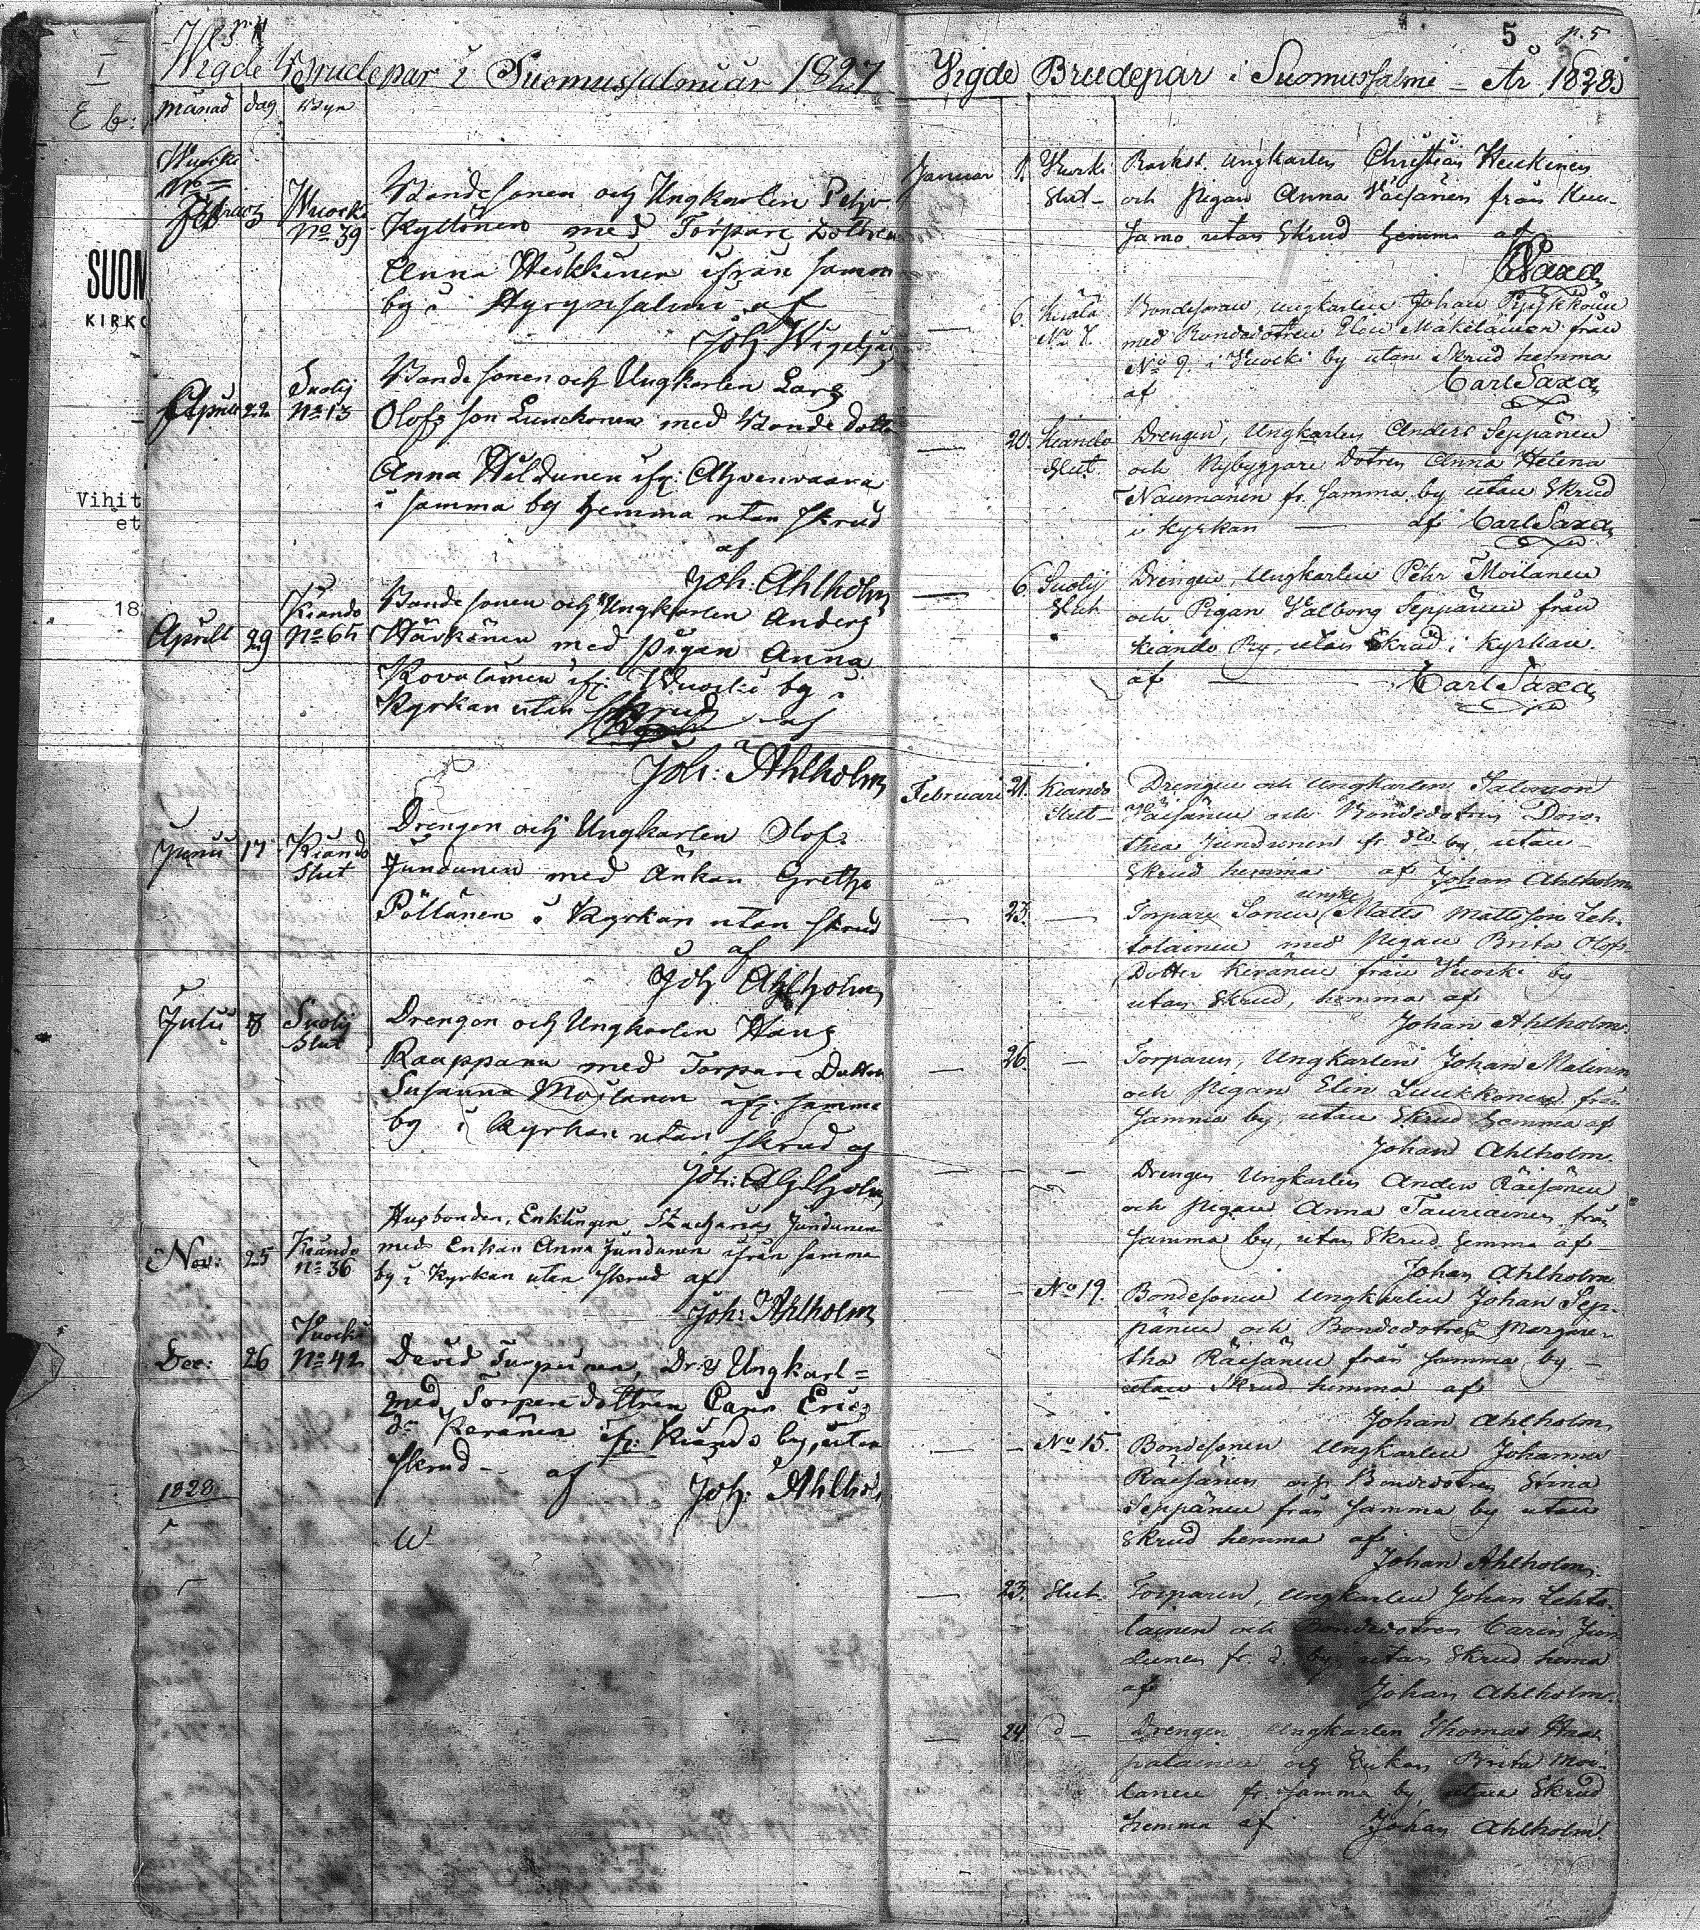 I
E b:
SUOM
KIRKO
Vihit
et
18
Wigde Brudepar i Suomussalmi år 1827
månad dag Byn
Wuocki
No
Februari 3 Wuocki No 39
Bonde sonen och Ungkarlen Petter
Kyllönen med Torpare Dottren
Anna Heikkinen ifrån samma
by i Hyrynsalmi af
Joh Wigelius
April 22 Suolij No 13
Bonde sonen och Ungkarlen Lars
Olofs son Luuckonen med Bonde dott
Anna Hildunen ifr: Ahvenvaara
i samma by hemma utan skrud
af
Joh: Ahlholm
April 29 Kiando No 65
Bonde sonen och Ungkarlen Anders
Härkönen med Pigan Anna
Kovalainen ifr: Wuocki by i
Kyrkan utan skrud
af
Joh: Ahlholm
Junii 17 Kiando Slut
Drengen och Ungkarlen Olof
Jundunen med Änkan Gretha
Pöllänen i Kyrkan utan skrud
af
Joh Ahlholm
Julii 8 Suolij Slut
Drengen och Ungkarlen Hans
Raappana med Torpare Dottren
Susanna Moilanen ifr: samma
by i Kyrkan utan skrud af
Joh: Ahlholm
Nov: 25 Kiando No 36
Husbonden, Enklingen, Zacharias Jundunen
med Enkan Anna Jundunen ifrån samma
by i Kyrkan utan skrud af
Joh: Ahlholm
Dec: 26 Wuocki No 42
David Turpeinen, Dr: Ungkarl=
med Torpare dottren Carin Erics
dr Keränen ifr: Kiando by, utan
skrud - af Joh: Ahlhol
1828
5 p.5
Vigde Brudepar i Suomussalmi - År 1828
Januar Vuocki Slut - Backst. Ungkarlen Christian Heickinen
och Pigan Anna Väisänen från Kuu-
samo utan Skrud hemma af
C Saxa
— 6. No 7. Bondesonen, Ungkarlen Johan Pyykkönen
med Bondedotren Elin Mäkeläinen från
No 9. i Vuocki by utan Skrud hemma
af Carl Saxa
— 20. Kiando Slut. Drengen, Ungkarlen Anders Seppänen
och Nybyggare Dotren Anna Helena
Naumanen fr. samma by utan Skrud
i Kyrkan — af Carl Saxa
— 6 Suolij Slut Drengen, Ungkarlen Pehr Moilanen
och Pigan Valborg Seppänen från
Kiando By, utan Skrud i Kyrkan.
af — Carl Saxa
Februari 21. Kiando Slut - Drengen och Ungkarlen Salomon
Räisänen och Bondedotren Doro-
thea Jundunen fr. do by, utan
Skrud hemma af Johan Ahlholm
— 23. — Torpare Sonen Ungk. Matts Mattsson Leh-
tolainen med Pigan Brita Olofs
Dotter Keränen från Vuocki by
utan Skrud, hemma af
Johan Ahlholm.
— 26. — Torparen, Ungkarlen Johan Malinen
och Pigan Elin Luukkonen från
samma by, utan Skrud hemma af
Johan Ahlholm.
— — — Drengen Ungkarlen Anders Räisänen
och Pigan Anna Tauriainen från
samma by, utan Skrud hemma af
Johan Ahlholm
— — No 19. Bondesonen Ungkarlen Johan Sep-
pänen och Bondedotren Margare-
tha Räisänen från samma by -
utan Skrud hemma af
Johan Ahlholm
— — No 15. Bondesonen Ungkarlen Johannes
Räisänen och Bondedotren Stina
Seppänen från samma by utan
Skrud hemma af
Johan Ahlholm.
— 23. Slut. Torparen, Ungkarlen Johan Lehto-
lainen och Bondedotren Carin Jun
dunen fr. d. by utan Skrud hema
af Johan Ahlholm.
— 24. d - Drengen Ungkarlen Thomas Haa
patainen och Enkan Brita Moi-
lanen fr. samma by, utan Skrud
hemma af Johan Ahlholm.